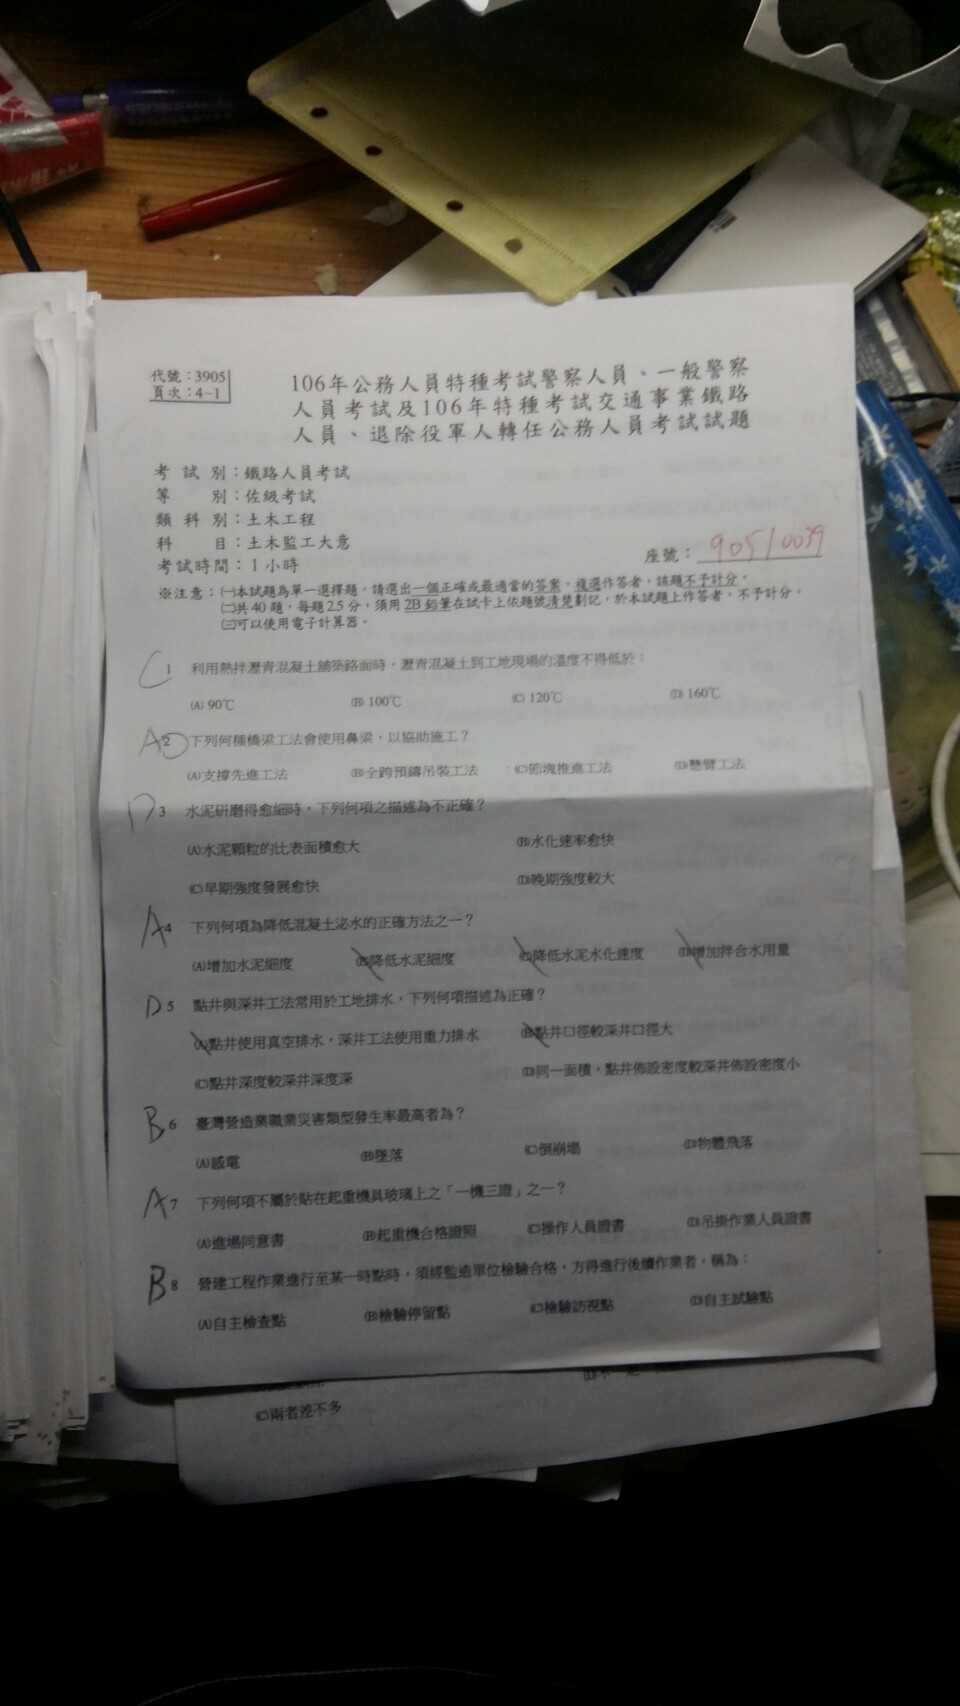 代號：3905
頁次：4-1
106年公務人員特種考試警察人員、一般警察
人員考試及106年特種考試交通事業鐵路
人員、退除役軍人轉任公務人員考試試題
考試別：鐵路人員考試
等別：佐級考試
類科別：土木工程
科目：土木監工大意
考試時間：1小時
座號：90510039
※注意：㈠本試題為單一選擇題，請選出一個正確或最適當的答案，複選作答者，該題不予計分。
㈡共40題，每題2.5分，須用2B鉛筆在試卡上依題號清楚劃記，於本試題上作答者，不予計分。
㈢可以使用電子計算器。
C 1 利用熱拌瀝青混凝土舖築路面時，瀝青混凝土到工地現場的溫度不得低於：
(A) 90℃ (B) 100℃ (C) 120℃ (D) 160℃
A 2 下列何種橋梁工法會使用鼻梁，以協助施工？
(A)支撐先進工法 (B)全跨預鑄吊裝工法 (C)節塊推進工法 (D)懸臂工法
D 3 水泥研磨得愈細時，下列何項之描述為不正確？
(A)水泥顆粒的比表面積愈大 (B)水化速率愈快
(C)早期強度發展愈快 (D)晚期強度較大
A 4 下列何項為降低混凝土泌水的正確方法之一？
(A)增加水泥細度 (B)降低水泥細度 (C)降低水泥水化速度 (D)增加拌合水用量
D 5 點井與深井工法常用於工地排水，下列何項描述為正確？
(A)點井使用真空排水，深井工法使用重力排水 (B)點井口徑較深井口徑大
(C)點井深度較深井深度深 (D)同一面積，點井佈設密度較深井佈設密度小
B 6 臺灣營造業職業災害類型發生率最高者為？
(A)感電 (B)墜落 (C)倒崩塌 (D)物體飛落
A 7 下列何項不屬於貼在起重機具玻璃上之「一機三證」之一？
(A)進場同意書 (B)起重機合格證照 (C)操作人員證書 (D)吊掛作業人員證書
B 8 營建工程作業進行至某一時點時，須經監造單位檢驗合格，方得進行後續作業者，稱為：
(A)自主檢查點 (B)檢驗停留點 (C)檢驗訪視點 (D)自主試驗點
(C)兩者差不多